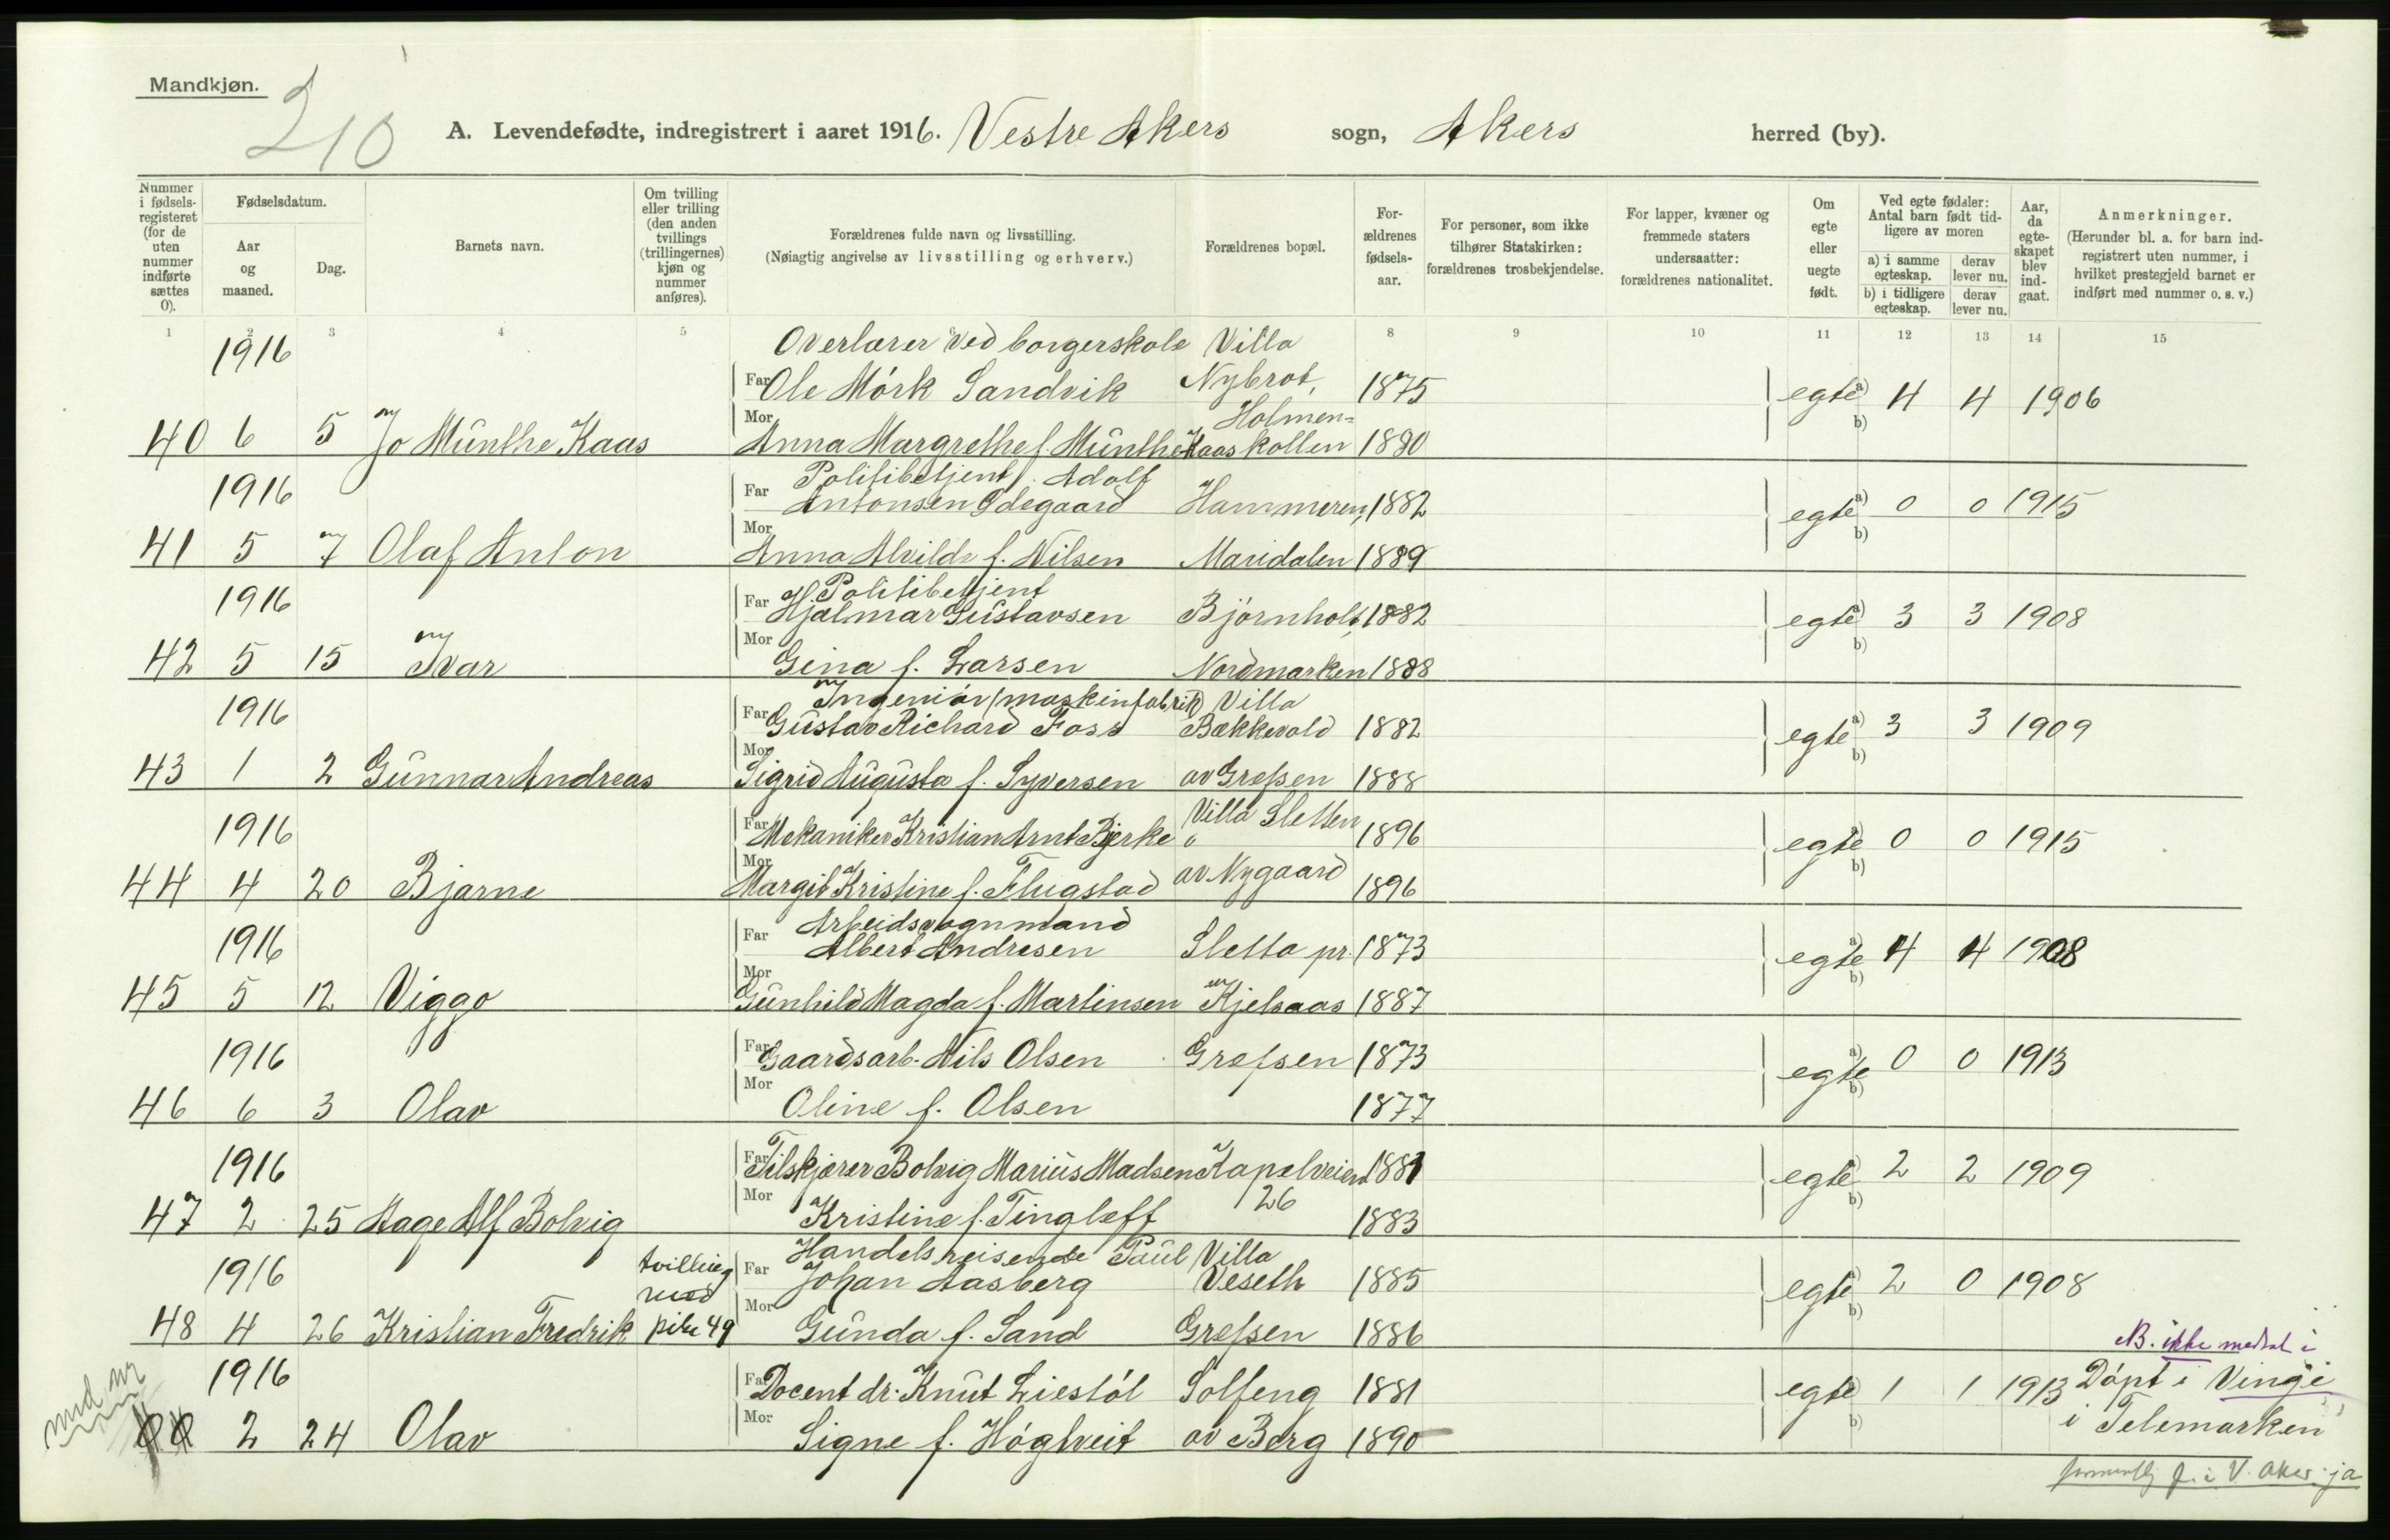 Mandkjøn.
210
A. Levendefødte, indregistrert i aaret 1916. Vestre Akers sogn, Akers herred (by).
Nummer i fødselsregisteret (for de uten nummer indførte sættes 0).
Fødselsdatum.
Aar og maaned.
Dag.
Barnets navn.
Om tvilling eller trilling (den anden tvillings (trillingernes) kjøn og nummer anføres).
Forældrenes fulde navn og livsstilling.
(Nøiagtig angivelse av livsstilling og erhverv.)
Forældrenes bopæl.
Forældrenes fødselsaar.
For personer, som ikke tilhører Statskirken: forældrenes trosbekjendelse.
For lapper, kvæner og fremmede staters undersaatter: forældrenes nationalitet.
Om egte eller uegte født.
Ved egte fødsler: Antal barn født tidligere av moren
a) i samme egteskap. derav lever nu.
b) i tidligere egteskap. derav lever nu.
Aar, da egteskapet blev indgaat.
Anmerkninger.
(Herunder bl. a. for barn indregistrert uten nummer, i hvilket prestegjeld barnet er indført med nummer o. s. v.)
1 2 3 4 5 8 9 10 11 12 13 14 15
1916 Overlærer ved borgerskole Villa
Far Ole Mörk Sandvik Nybrot, 1875 egte a) 4 4 1906
Mor Holmen= b)
40 6 5 Jo Munthe Kaas Anna Margrethe f. Munthe Kaas kollen 1880
1916 Far Politibetjent Adolf
Antonsen Ødegaard Hammeren, 1882 egte a) 0 0 1915
Mor b)
41 5 7 Olaf Anton Anna Alvilde f. Nilsen Maridalen 1889
1916 Far Politibetjent
Hjalmar Gustavsen Björnholt, 1882 egte a) 3 3 1908
Mor b)
42 5 15 Ivar Gina f. Larsen Nordmarken 1888
1916 Ingeniör (maskinfabrik) Villa
Far Gustav Richard Foss Bækkevold 1882 egte a) 3 3 1909
Mor b)
43 1 2 Gunnar Andreas Sigrid Augusta f. Syversen av Grefsen 1888
1916 Far Mekaniker Kristian Arnt Bjerke Villa Sletten 1896 egte a) 0 0 1915
Mor b)
44 4 20 Bjarne Margit Kristine f. Flugstad av Nygaard 1896
1916 Far Arbeidsvognmand
Albert Andresen Sletta pr. 1873 egte a) 4 4 1908
Mor b)
45 5 12 Viggo Gunhild Magda f. Martinsen Kjelsaas 1887
1916 Far Gaardsarb. Nils Olsen Grefsen 1873 egte a) 0 0 1913
Mor b)
46 6 3 Olav Oline f. Olsen 1877
1916 Far Tilskjærer Bolvig Marius Madsen Kapelveien 1881 egte a) 2 2 1909
Mor 26 b)
47 2 25 Aage Alf Bolvig Kristine f. Tingleff 1883
1916 tvilling Far Handelsreisende Paul Villa
med Johan Aasberg Veseth 1885 egte a) 2 0 1908
Mor b)
48 4 26 Kristian Fredrik pike 49 Gunda f. Sand Grefsen 1886
1916 B. ikke medtat i
Far Docent dr. Knut Liestöl Solfeng 1881 egte a) 1 1 1913 Döpt i Vinje
Mor b)
2 24 Olav Signe f. Högtveit av Berg 1890 i Telemarken
f. i V. Aker: ja